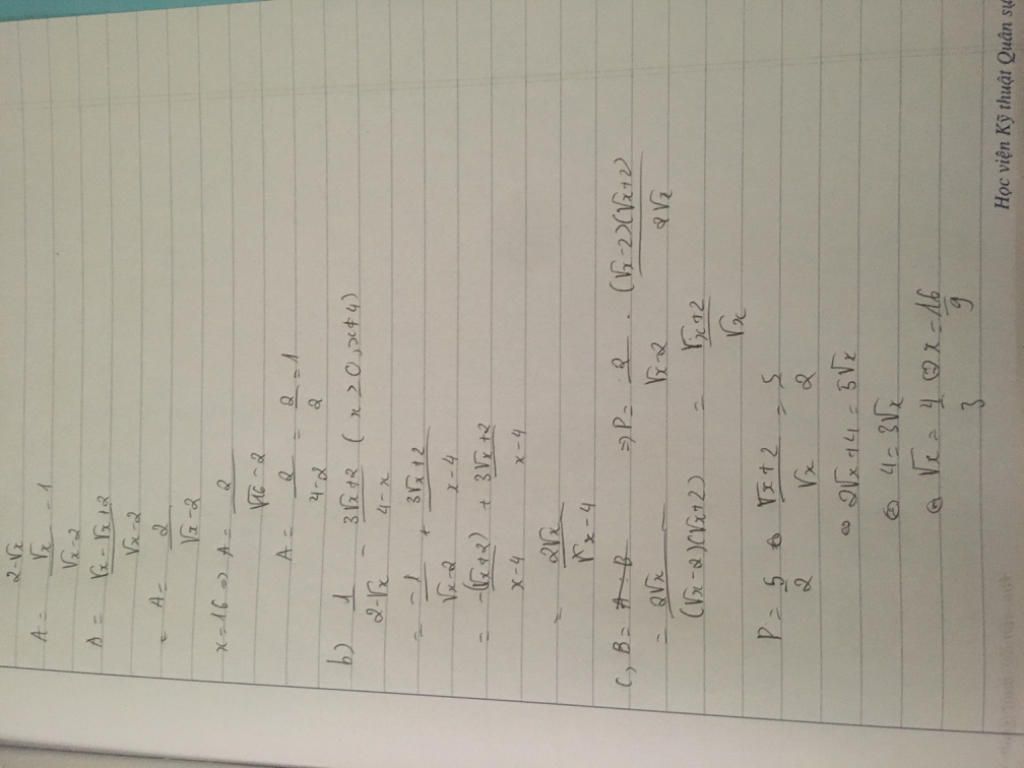 2-√x
A = √x/(√x-2) - 1
A = (√x-√x+2)/(√x-2)
= A = 2/(√x-2)
x=16 => A = 2/(√16-2)
A = 2/(4-2) = 2/2 = 1
b) 1/(2-√x) - (3√x+2)/(4-x) (x≥0, x≠4)
= -1/(√x-2) + (3√x+2)/(x-4)
= -(√x+2)/(x-4) + (3√x+2)/(x-4)
= 2√x/(√x-4)
c, B = => P = 2/(√x-2) . (√x-2)(√x+2)/(2√x)
= 2√x/((√x-2)(√x+2)) = (√x+2)/√x
P = 5/2 ⇔ (√x+2)/√x = 5/2
⇔ 2√x+4 = 5√x
⇔ 4 = 3√x
⇔ √x = 4/3 ⇔ x = 16/9
Học viện Kỹ thuật Quân sự